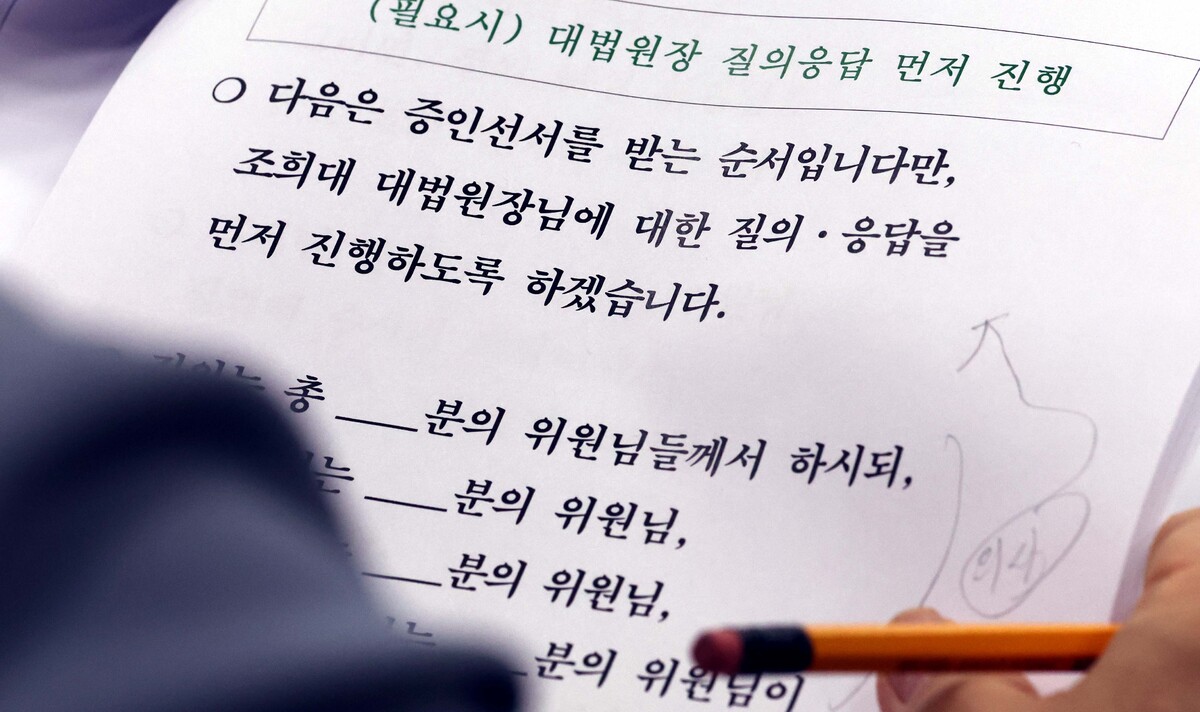 (필요시) 대법원장 질의응답 먼저 진행
○ 다음은 증인선서를 받는 순서입니다만,
조희대 대법원장님에 대한 질의·응답을
먼저 진행하도록 하겠습니다.
총 ___분의 위원님들께서 하시되,
는 ___분의 위원님,
___분의 위원님,
는 ___분의 위원님이
의사